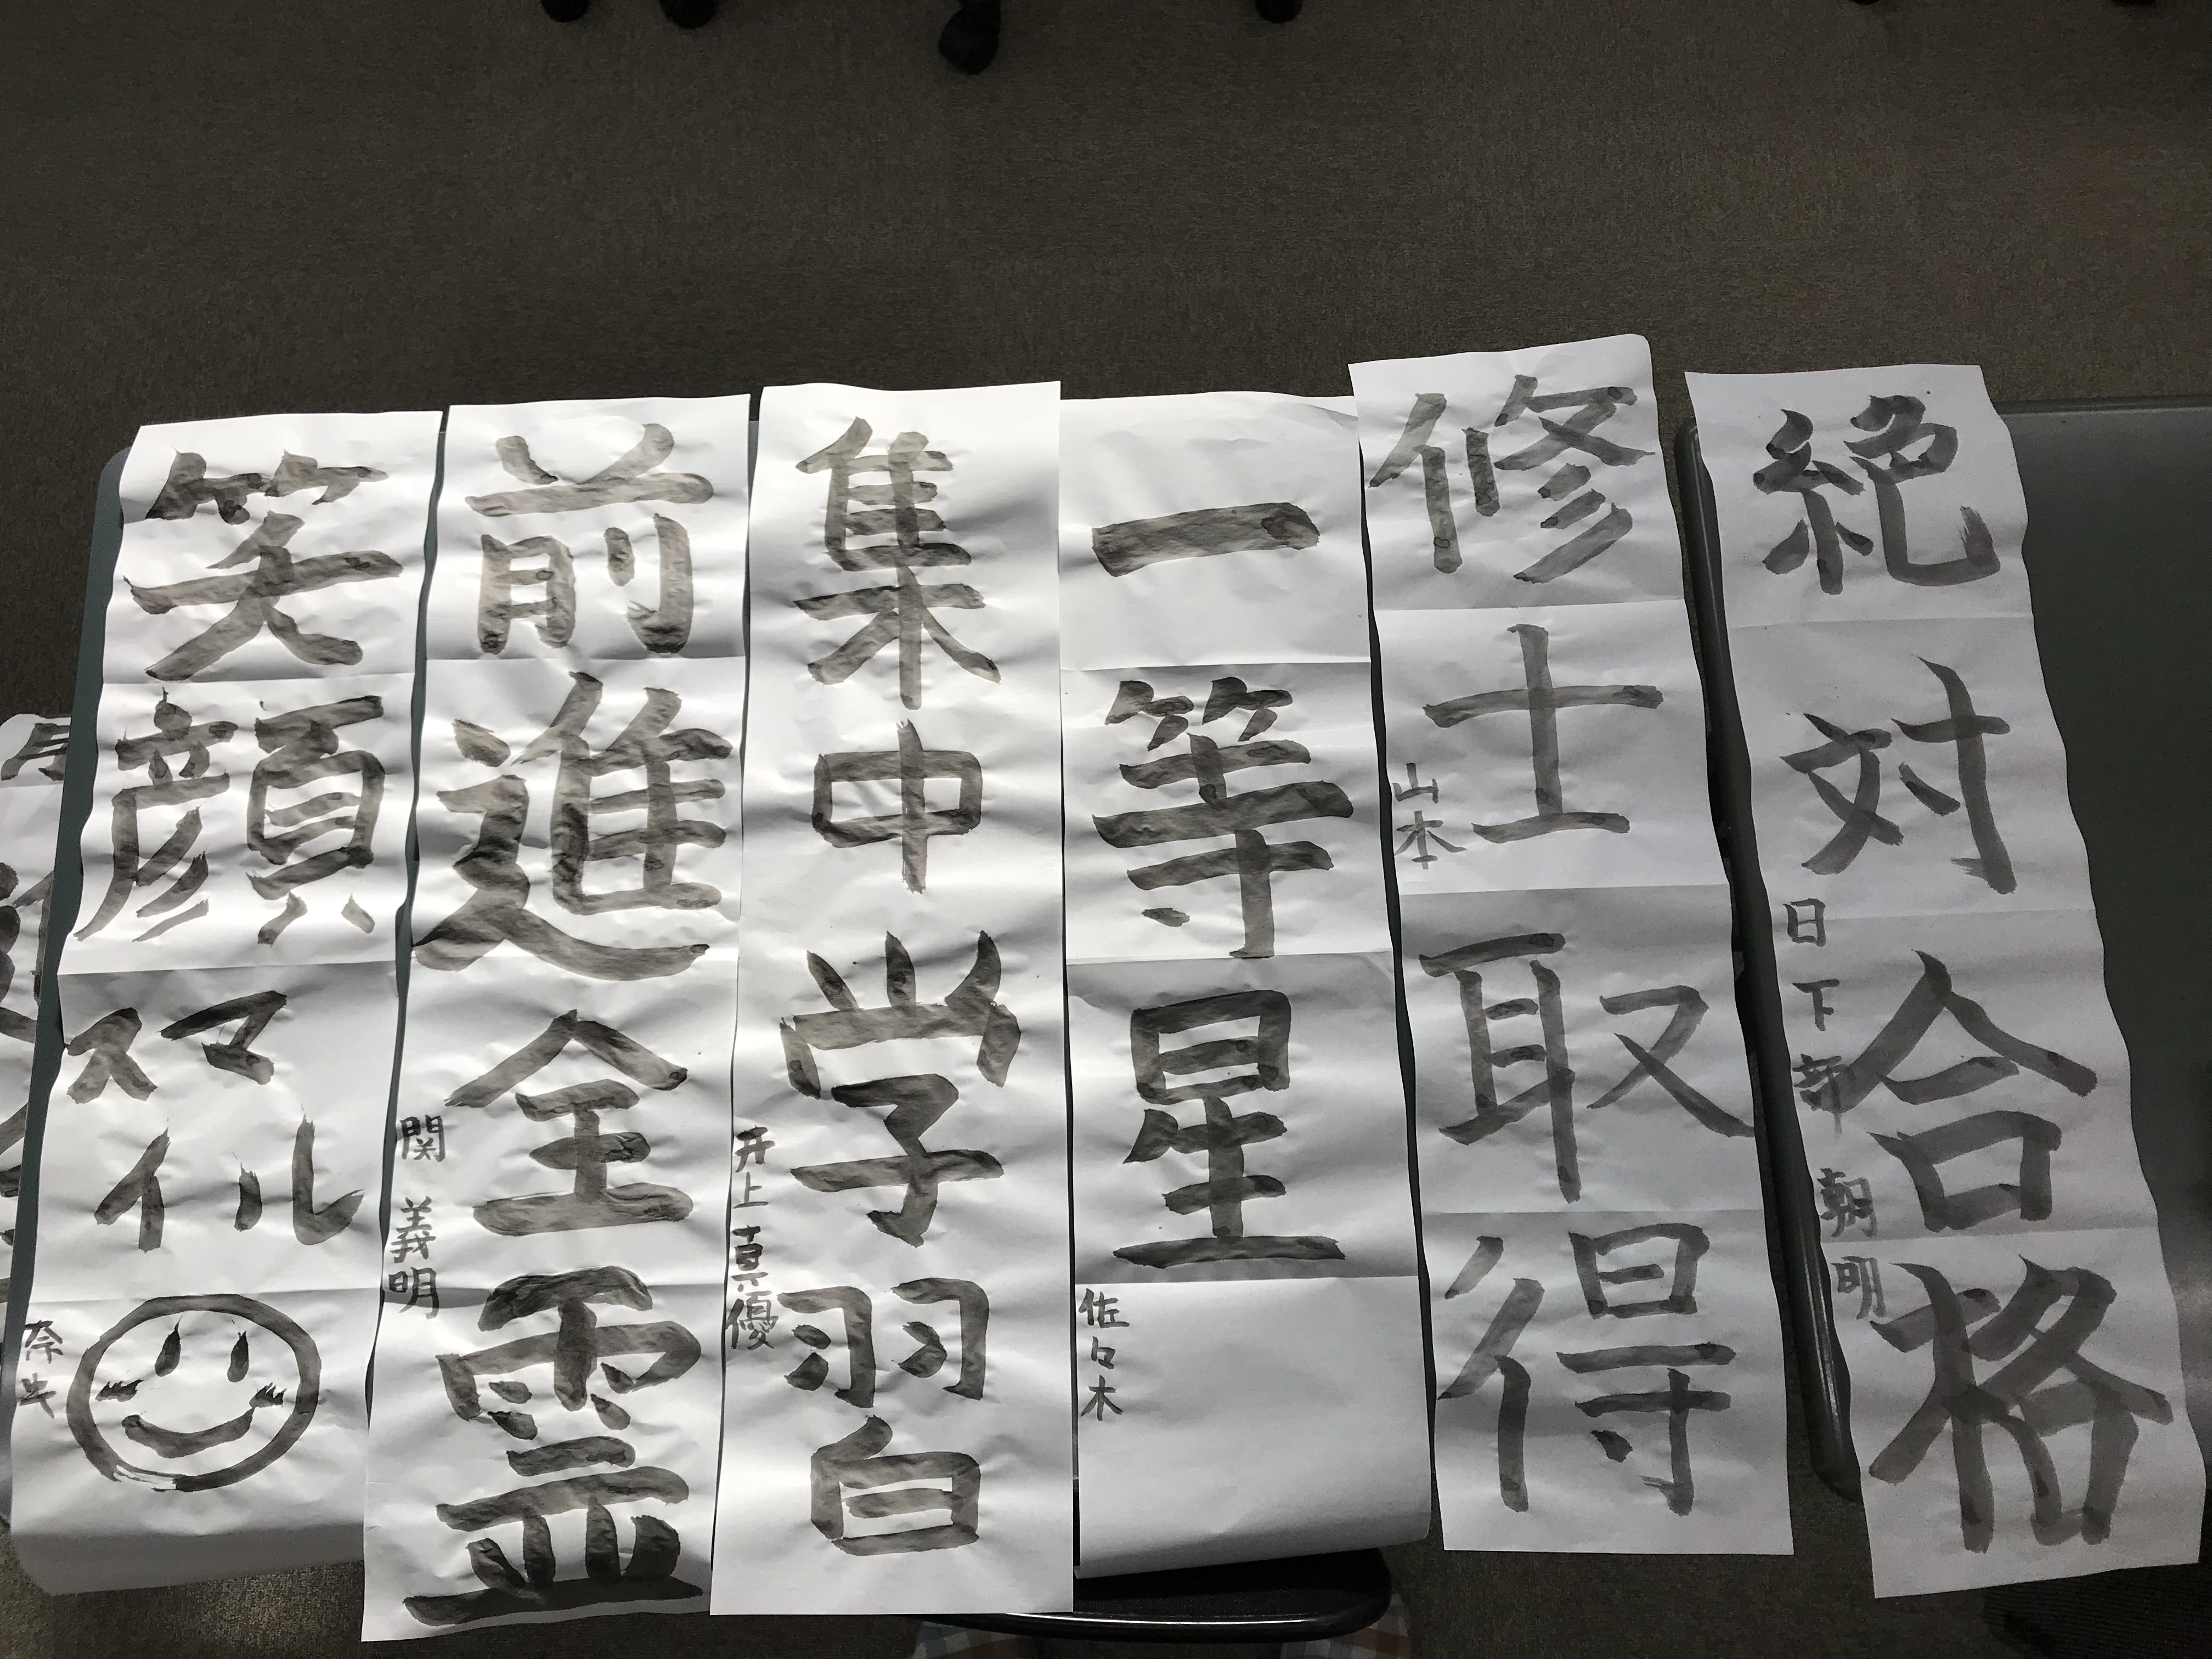 絶対合格
日下部 朝明
修士取得
山本
一等星
佐々木
集中学習
井上真優
前進全霊
関 義明
笑顔
スマ
イル
奈央